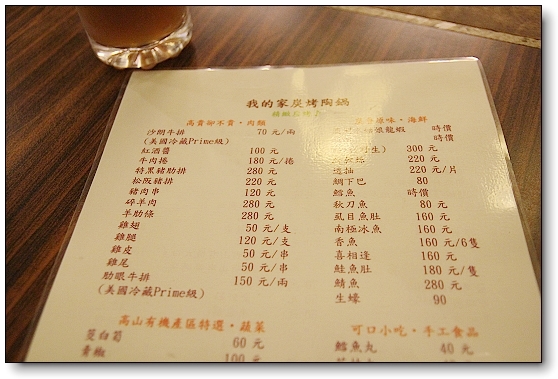 我的家炭烤陶鍋
高貴卻不貴・肉類
沙朗牛排 70 元/兩
(美國冷藏Prime級)
紅酒醬 100 元
牛肉捲 180 元/捲
特黑豬肋排 280 元
松阪豬排 220 元
豬肉串 120 元
碎羊肉 280 元
羊肋條 280 元
雞翅 50 元/支
雞腿 120 元/支
雞皮 50 元/串
雞尾 50 元/串
肋眼牛排 150 元/兩
(美國冷藏Prime級)
高山有機產區特選・蔬菜
筊白筍 60 元
青椒 100 元
原味・海鮮
龍蝦 時價
時價
300 元
220 元
透抽 220 元/片
鯛下巴 80
鱈魚 時價
秋刀魚 80 元
虱目魚肚 160 元
南極冰魚 160 元
香魚 160 元/6隻
喜相逢 160 元
鮭魚肚 180 元/隻
鯖魚 280 元
生蠔 90
可口小吃・手工食品
鱈魚丸 40 元